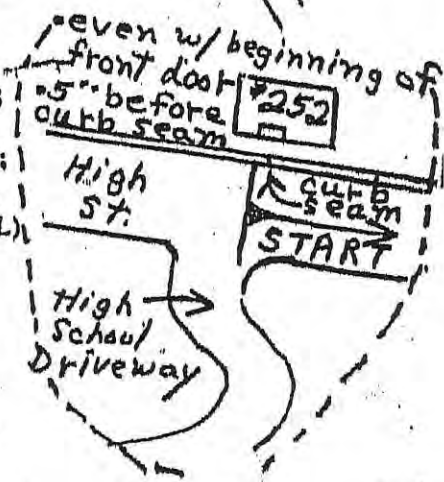 • even w/ beginning of
front door
• 5" before
curb seam
#252
High
St.
curb
seam
START
High
School
Driveway